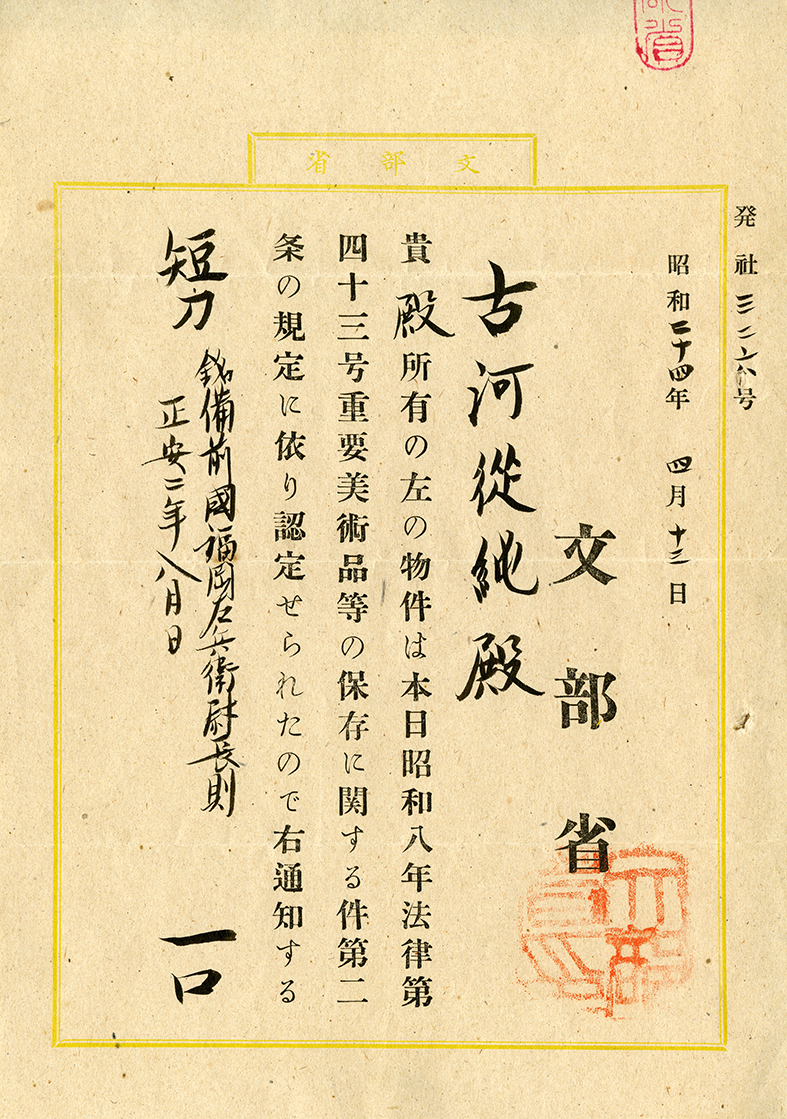 文部省
発社三二六号
昭和二十四年 四月十三日
文部省
古河從純殿
貴殿所有の左の物件は本日昭和八年法律第
四十三号重要美術品等の保存に関する件第二
条の規定に依り認定せられたので右通知する
短刀 銘備前國福岡左兵衛尉長則
正安二年八月日
一口